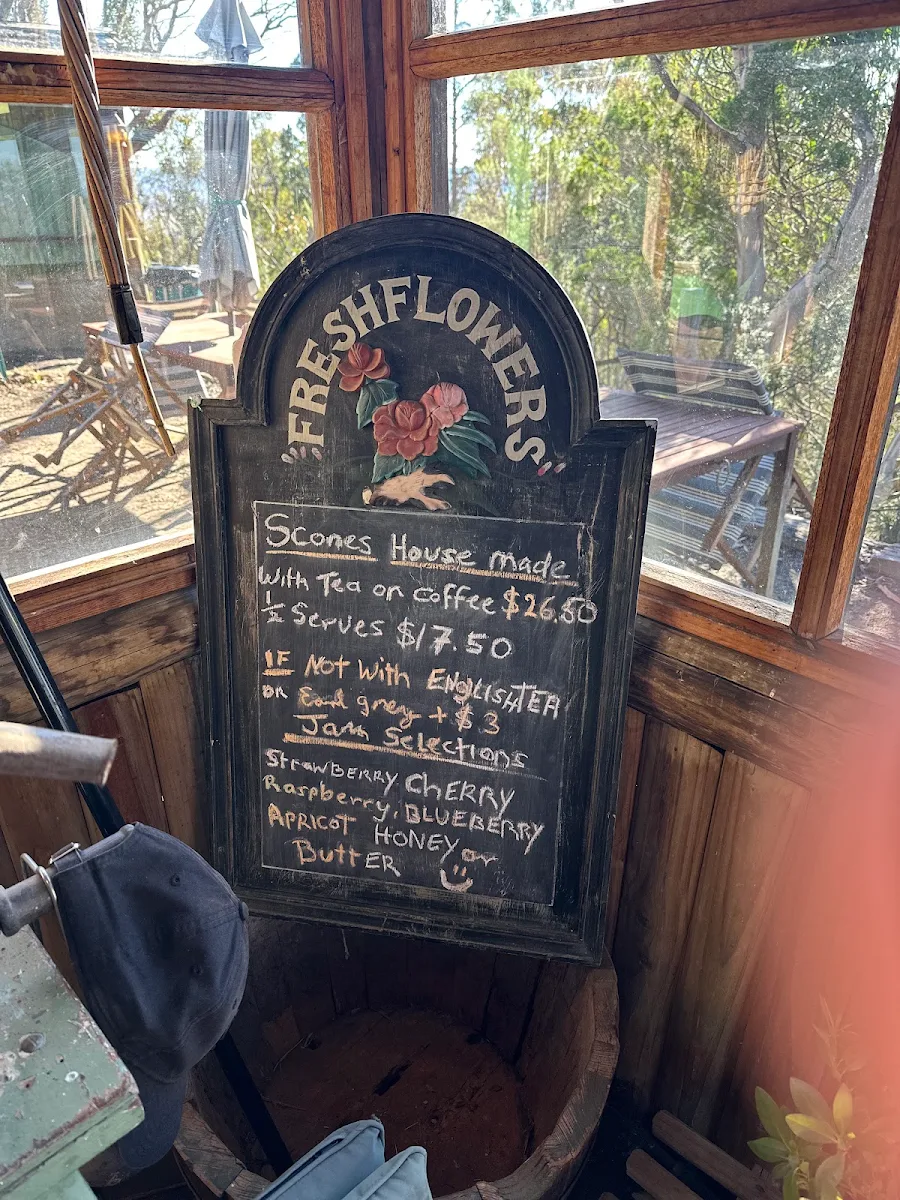 FRESHFLOWERS
Scones House made
With Tea or coffee $26.50
1/2 Serves $17.50
IF NOT WITH ENGLISHTEA
OR Earl grey + $3
Jam Selections
STRAWBERRY CHERRY
Raspberry, BLUEBERRY
APRICOT HONEY or
ButtER